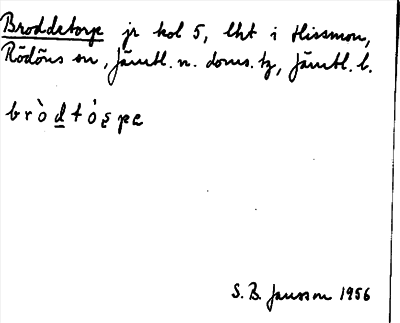 Broddetorp jr kol 5, lht i Hissmon,
Rödöns sn, Jämtl. n. doms. tg, Jämtl. l.
bròdtóspe
S. B. Jansson 1956